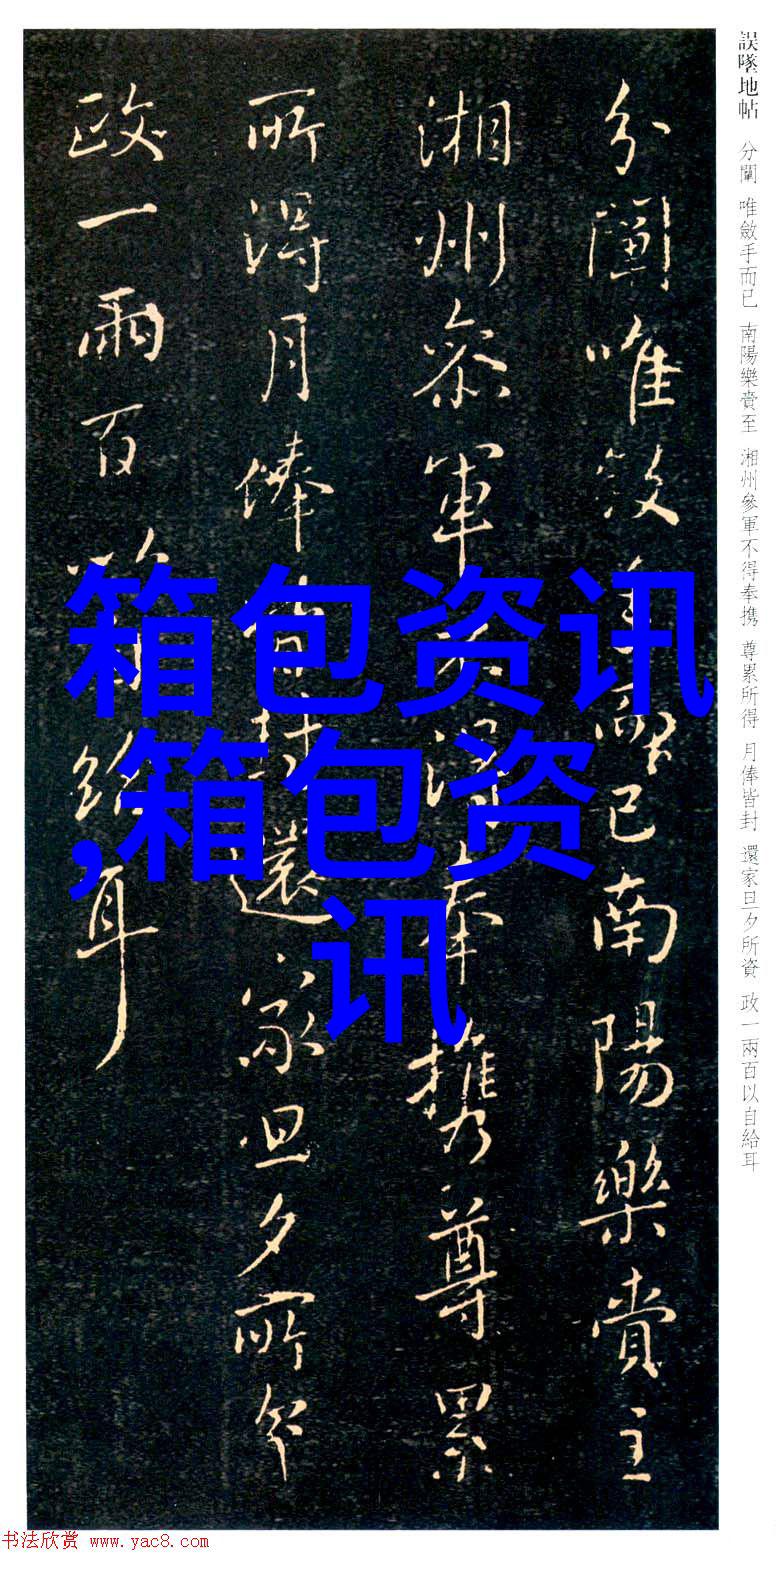 誤墜地帖 分闡 唯斂手而已 南陽樂賁至 湘州參軍不得奉携 尊累所得 月俸皆封 還家旦夕所資 政一兩百以自給耳
分闡唯斂手而已南陽樂賁至
湘州參軍不得奉攜尊累
所得月俸皆封還家旦夕所資
政一兩百以自給耳
箱包资讯
,箱包资
讯
书法欣赏 www.yac8.com